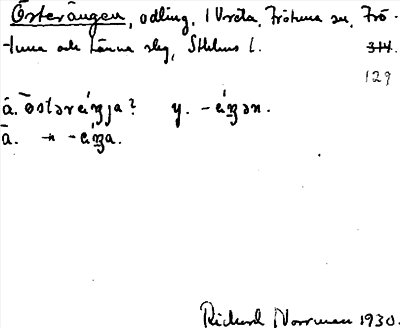 Österängen, odling, i Vreta, Frötuna sn, Frö-
tuna och Länna skg, Sthlms l. 314.
129
å. östəräŋja? y. -äŋən.
ä. -n -äŋa.
Richard Norrman 1930.